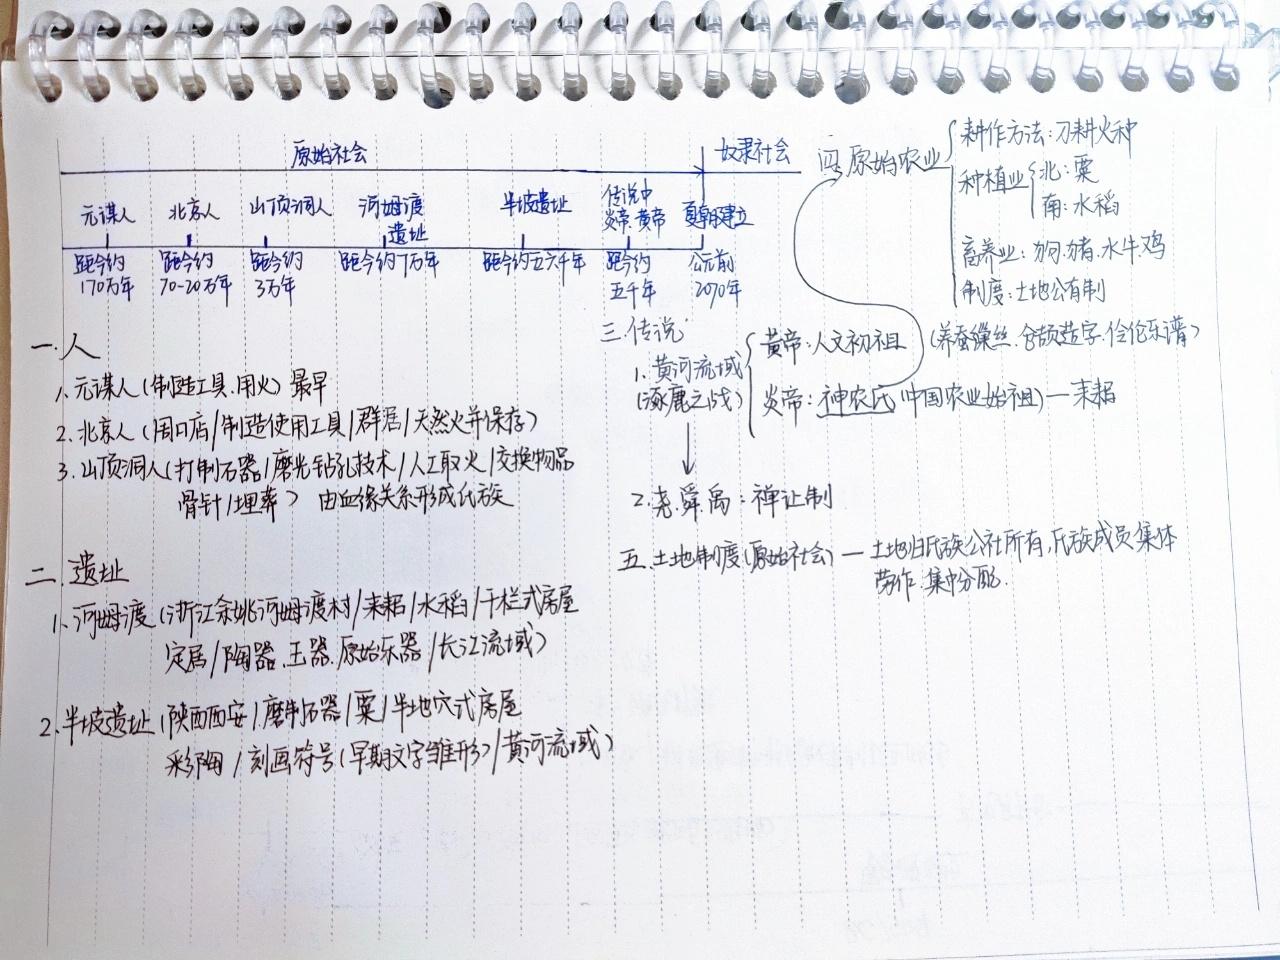 原始社会 奴隶社会
元谋人 北京人 山顶洞人 河姆渡遗址 半坡遗址 传说中炎帝.黄帝 夏朝建立
距今约170万年 距今约70-20万年 距今约3万年 距今约7万年 距今约五六千年 距今约五千年 公元前2070年
一.人
1.元谋人(制造工具.用火) 最早
2.北京人(周口店/制造使用工具/群居/天然火并保存)
3.山顶洞人(打制石器/磨光钻孔技术/人工取火/交换物品
骨针/埋葬) 由血缘关系形成氏族
二.遗址
1.河姆渡(浙江余姚河姆渡村/耒耜/水稻/干栏式房屋
定居/陶器.玉器.原始乐器/长江流域)
2.半坡遗址(陕西西安/磨制石器/粟/半地穴式房屋
彩陶/刻画符号(早期文字雏形)/黄河流域)
三.传说
1.黄河流域
(涿鹿之战)
黄帝:人文初祖 (养蚕缫丝.仓颉造字.伶伦乐谱)
炎帝:神农氏(中国农业始祖)—耒耜
2.尧.舜.禹:禅让制
四 原始农业
耕作方法:刀耕火种
种植业
北:粟
南:水稻
畜养业:狗.猪.水牛.鸡
制度:土地公有制
五.土地制度(原始社会)—土地归氏族公社所有,氏族成员集体
劳作.集中分配.